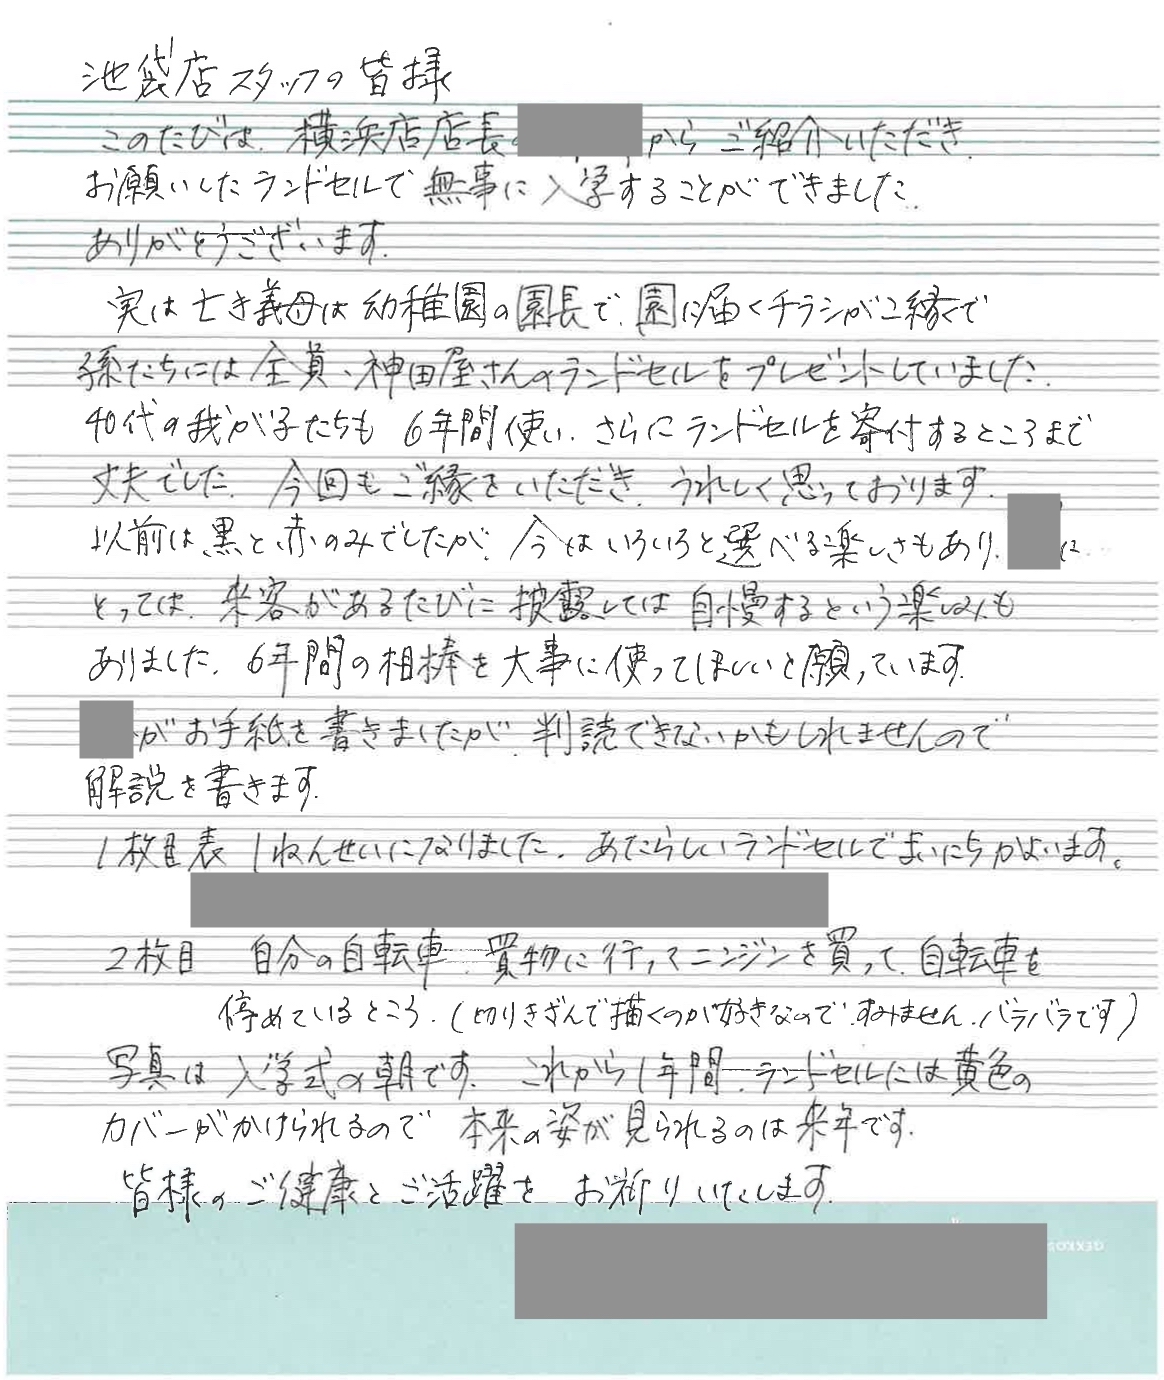 池袋店スタッフの皆様
このたびは、横浜店店長の からご紹介いただき、
お願いしたランドセルで無事に入学することができました。
ありがとうございます。
実は亡き義母は幼稚園の園長で、園に届くチラシがご縁で
孫たちには全員、神田屋さんのランドセルをプレゼントしていました。
40代の我が子たちも 6年間使い、さらにランドセルを寄付するところまで
丈夫でした。今回もご縁をいただき、うれしく思っております。
以前は黒と赤のみでしたが、今はいろいろと選べる楽しさもあり、 に
とっては、来客があるたびに披露しては自慢するという楽しみも
ありました。6年間の相棒を大事に使ってほしいと願っています。
がお手紙を書きましたが、判読できないかもしれませんので
解説を書きます。
1枚目表 1ねんせいになりました。あたらしいランドセルでまいにちかよいます。
2枚目 自分の自転車、買物に行ってニンジンを買って、自転車を
停めているところ。(切りきざんで描くのが好きなので、すみません、バラバラです)
写真は入学式の朝です。これから1年間、ランドセルには黄色の
カバーがかけられるので 本来の姿が見られるのは来年です。
皆様のご健康とご活躍を お祈りいたします。